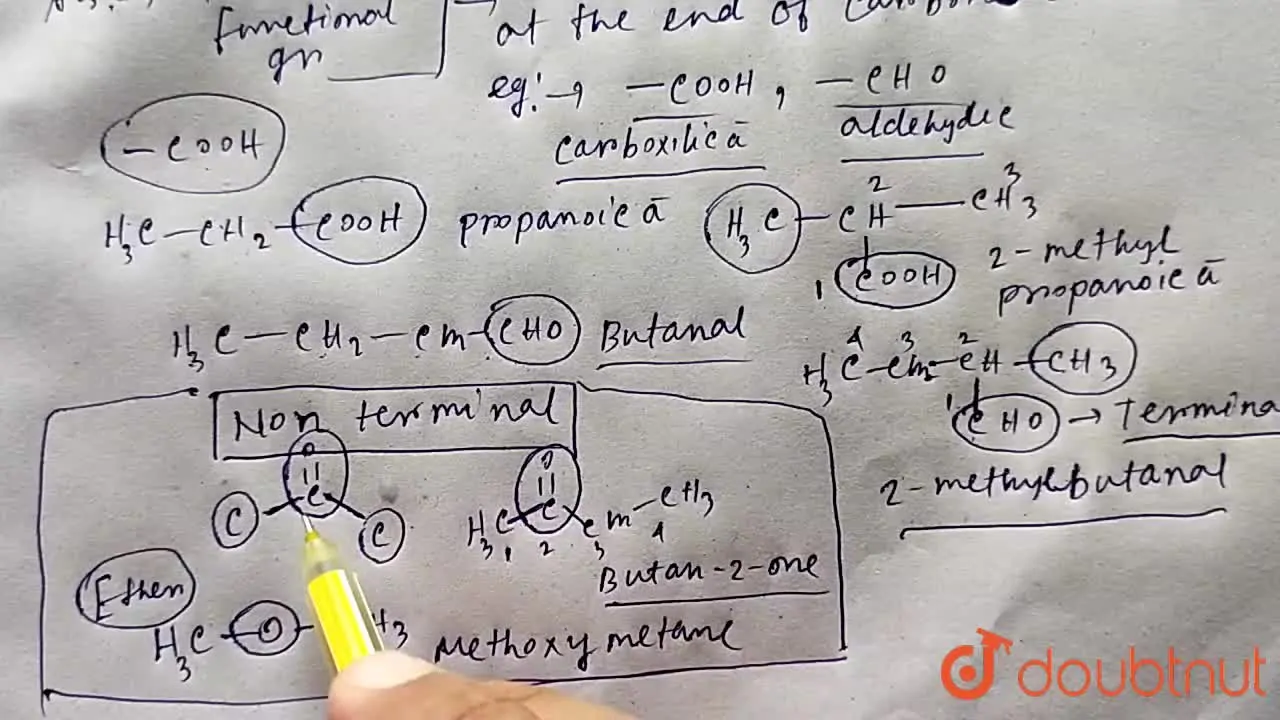 functional
gr
at the end of carbon
eg:→ —COOH, —CHO
carboxilic ā
aldehydic
—COOH
H3C—CH2—COOH propanoic ā
H3C—CH—CH3
2
3
1 COOH
2-methyl
propanoic ā
H3C—CH2—CH2—CHO Butanal
4 3 2
H3C—CH2—CH—CH3
1 CHO → Termina
2-methylbutanal
Non terminal
O
||
C C C
O
||
H3C C CH2—CH3
1 2 3 4
Butan-2-one
Ethen
H3C—O— H3
Methoxy metane
doubtnut